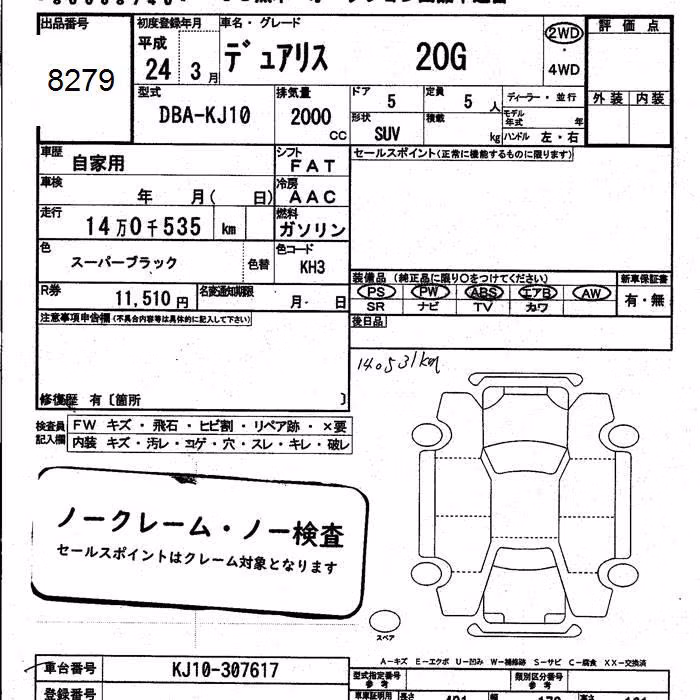 出品番号
8279
初度登録年月
平成
24 3 月
車名・グレード
デュアリス 20G
2WD
4WD
評価点
外装 内装
型式
DBA-KJ10
排気量
2000
CC
ドア
5
定員
5 人
形状
SUV
積載
kg
ディーラー・並行
モデル年式 年
ハンドル 左・右
車歴
自家用
シフト
FAT
セールスポイント(正常に機能するものに限ります)
車検
年 月( 日)
冷房
AAC
走行
14万0千535 km
燃料
ガソリン
色
スーパーブラック
色替
色コード
KH3
R券
11,510 円
名変通知期限
月 日
装備品 (純正品に限り○をつけてください)
PS PW ABS エアB AW
SR ナビ TV カワ
新車保証書
有・無
注意事項申告欄(不具合内容等は具体的に記入して下さい)
後日品
140531km
修復歴 有〔箇所 〕
検査員記入欄
FW キズ・飛石・ヒビ割・リペア跡・×要
内装 キズ・汚レ・コゲ・穴・スレ・キレ・破レ
ノークレーム・ノー検査
セールスポイントはクレーム対象となります
スペア
A-キズ E-エクボ U-凹み W-補修跡 S-サビ C-腐食 XX-交換済
車台番号
KJ10-307617
型式指定番号
参考
類別区分番号
参考
登録番号
車車証明用 長さ
幅
高さ